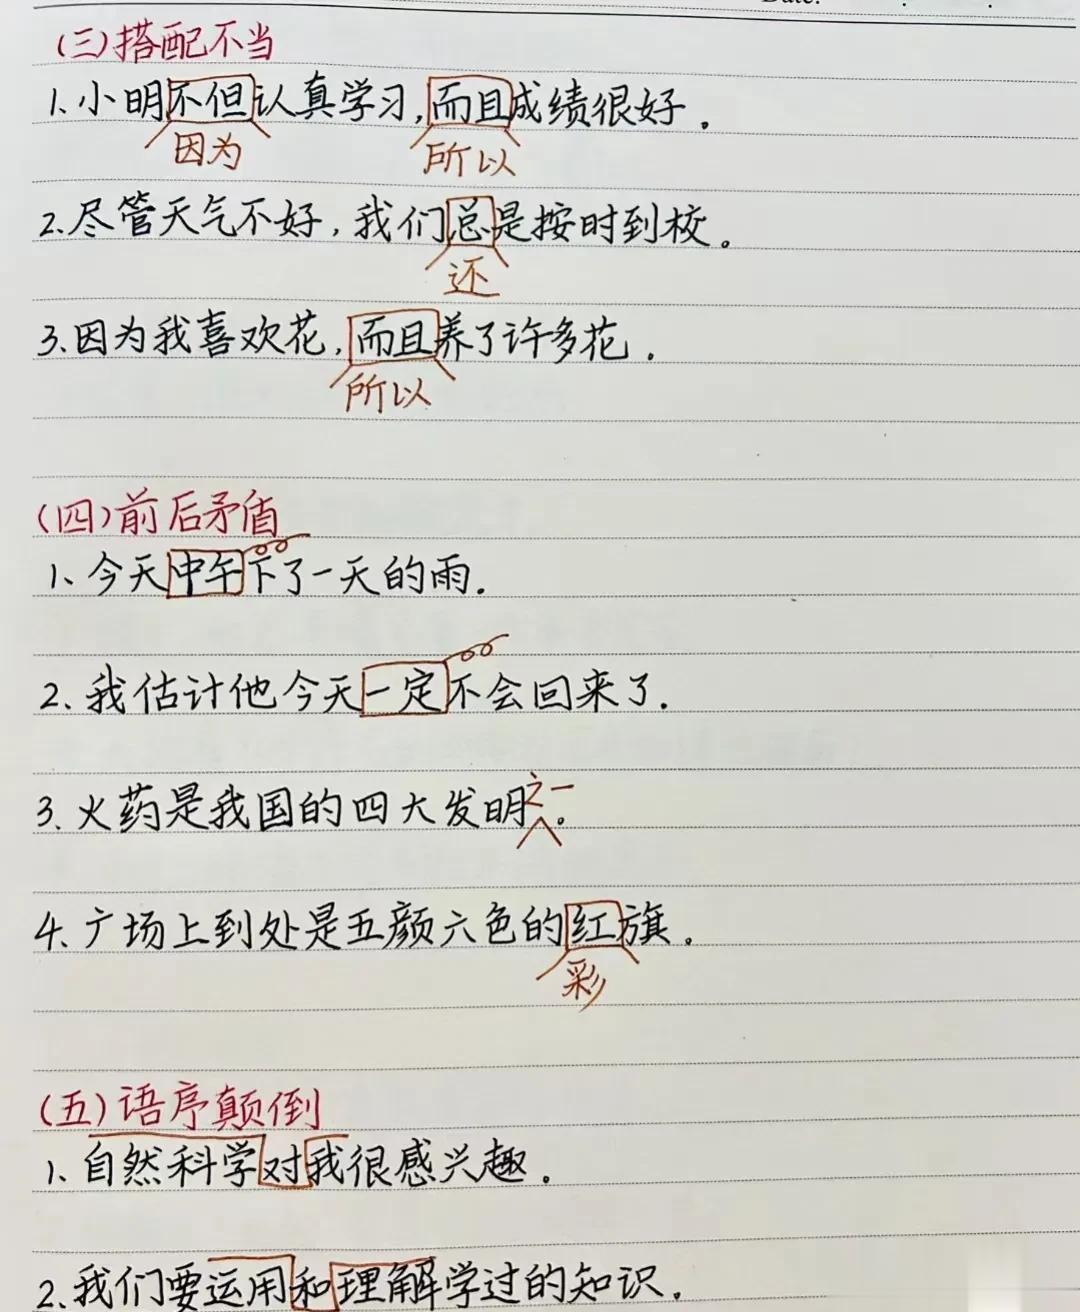 Date:
(三)搭配不当
1.小明不但认真学习,而且成绩很好。
因为 所以
2.尽管天气不好,我们总是按时到校。
还
3.因为我喜欢花,而且养了许多花.
所以
(四)前后矛盾
1、今天中午下了一天的雨.
2、我估计他今天一定不会回来了.
之一
3、火药是我国的四大发明。
4、广场上到处是五颜六色的红旗。
彩
(五)语序颠倒
1、自然科学对我很感兴趣。
2、我们要运用和理解学过的知识。